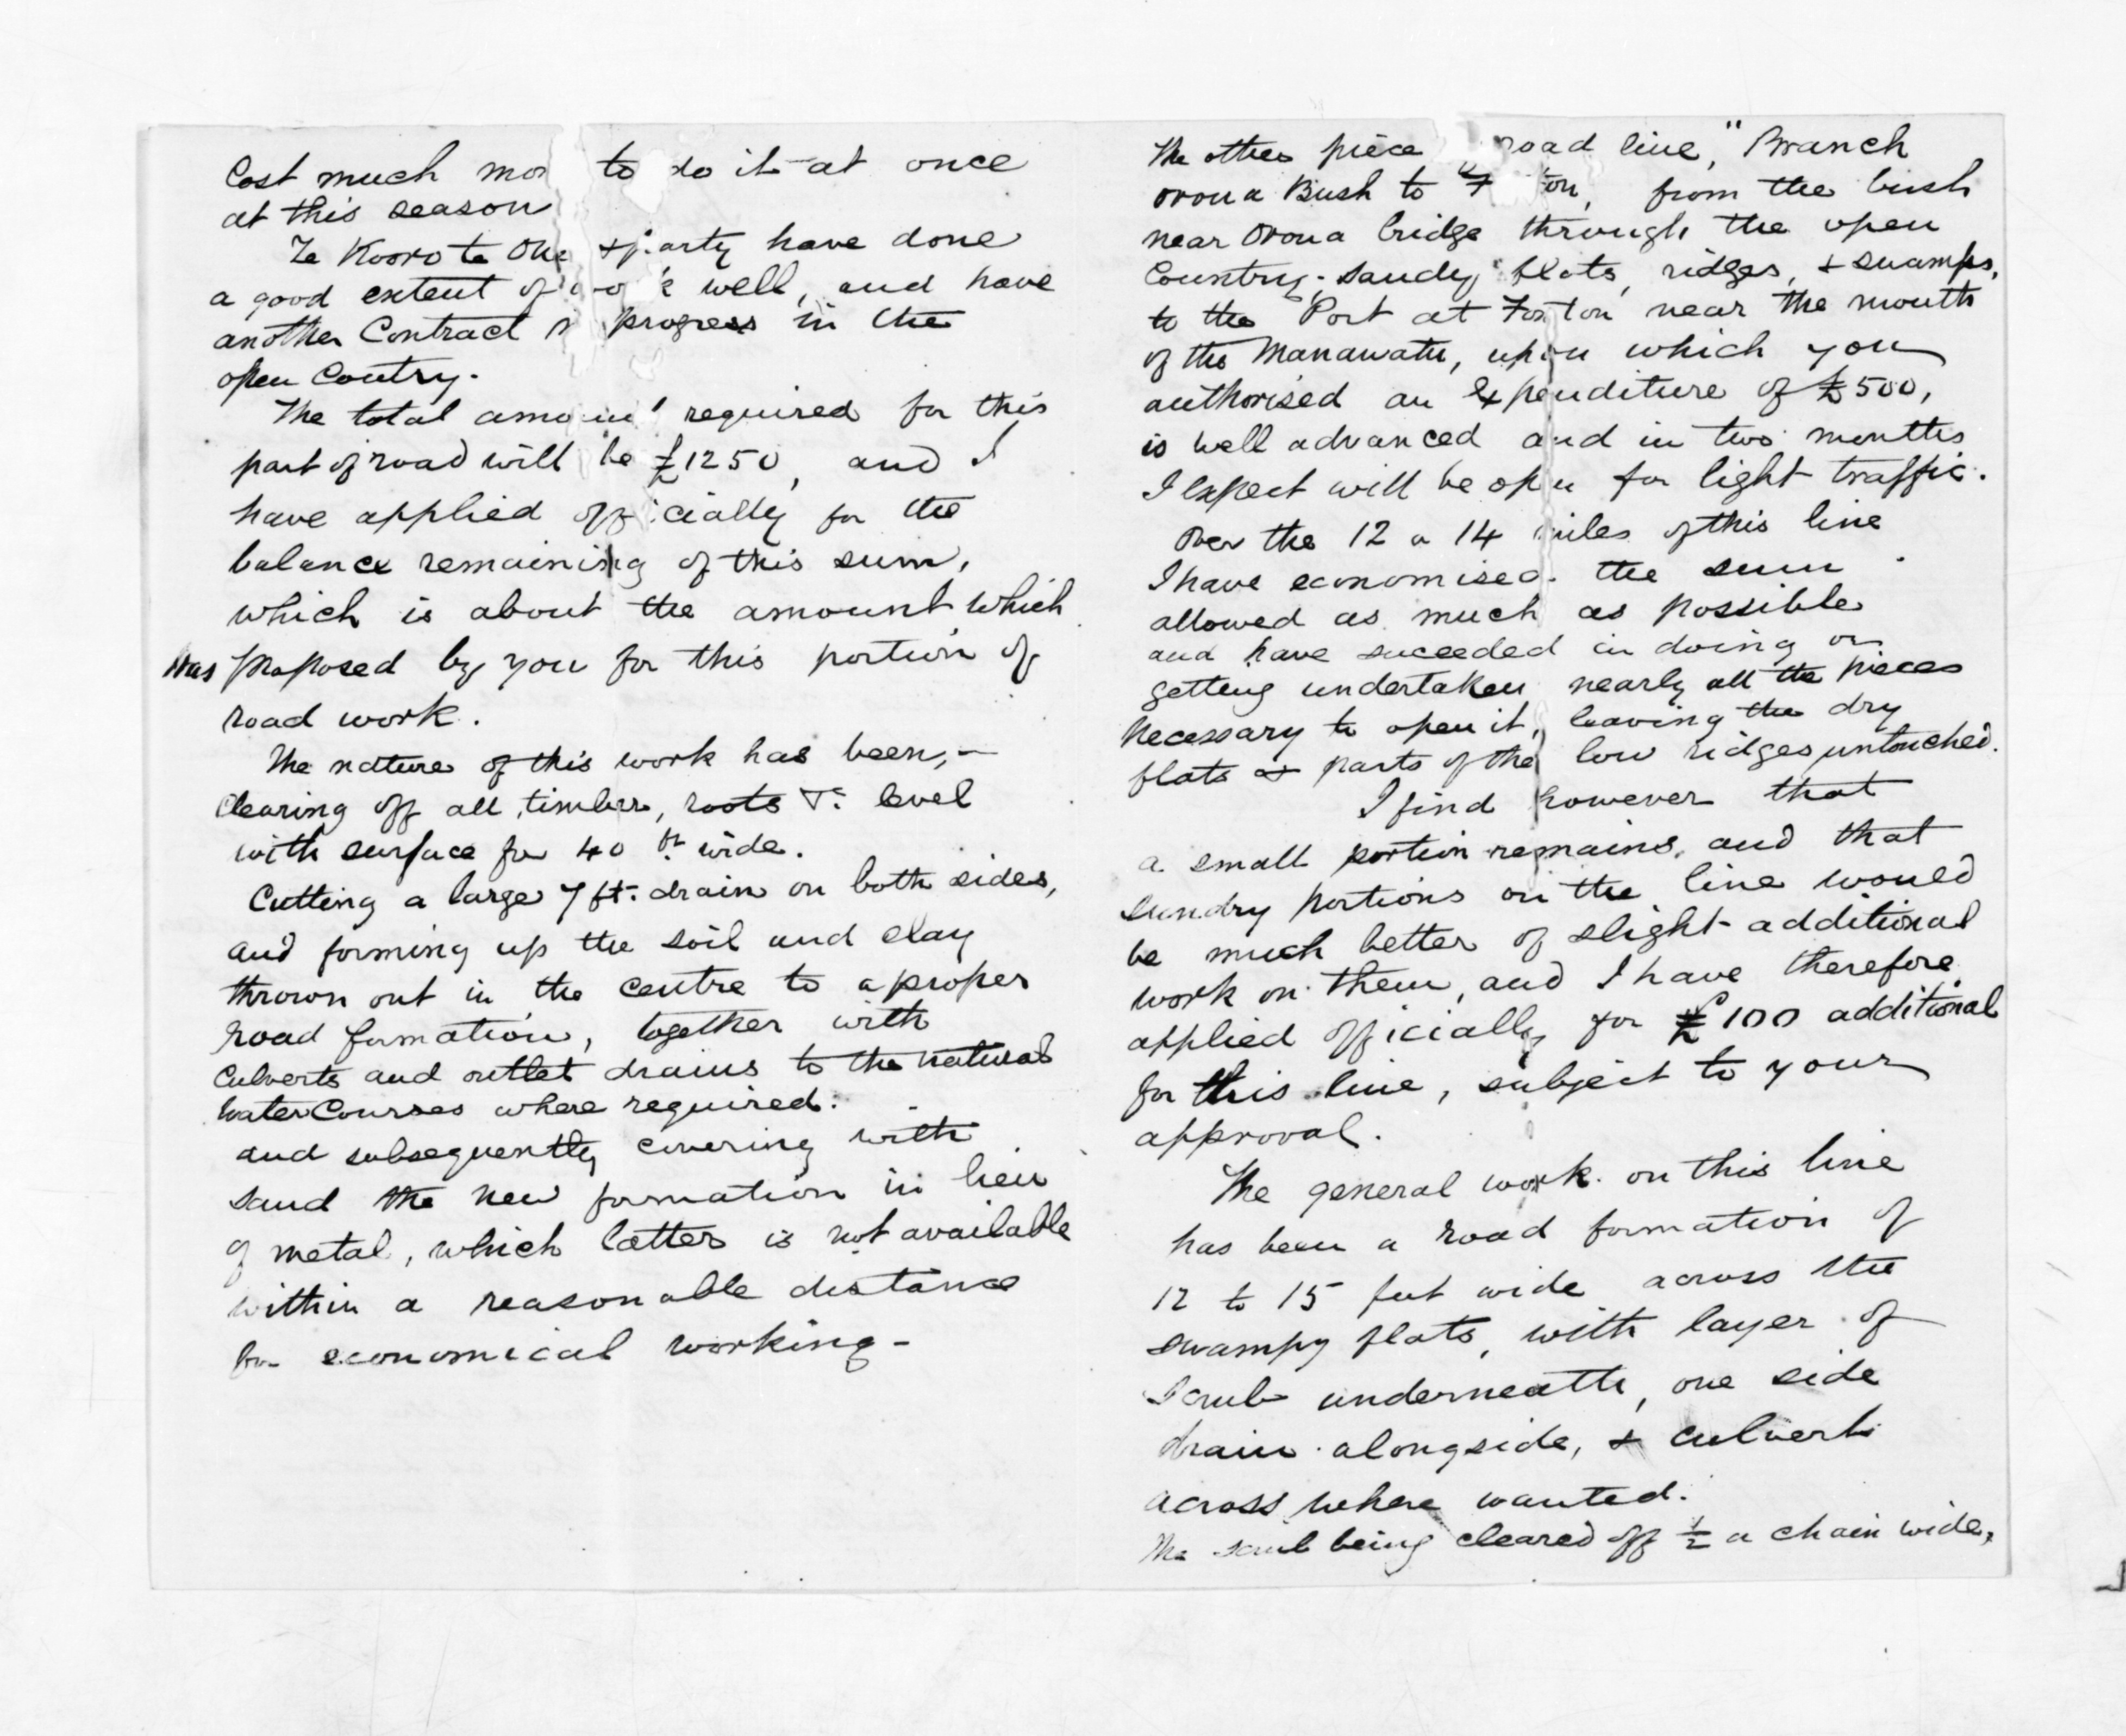 Cost much mor to do it at once
at this season
Te Kooro te One & party have done
a good extent of work well, and have
another Contract in progress in the
open Coutry.
The total amount required for this
part of road will be £1250, and I
have applied officially for the
balance remaining of this sum,
which is about the amount which
was proposed by you for this portion of
road work.
The nature of this work has been, —
Clearing off all timber, roots &c level
with surface for 40 ft wide.
Cutting a large 7 ft. drain on both sides,
and forming up the soil and clay
thrown out in the centre to a proper
road formation, together with
Culverts and outlet drains to the natural
water Courses where required.
and subsequently covering with
sand the new formation in lieu
of metal, which latter is not available
within a reasonable distance
for economical working –
The other piece road line, "Branch
Oroua Bush to ton, from the bush
near Oroua bridge through the open
Country; sandy flats, ridges, & swamps,
to the Port at Foxton near the mouth
of the Manawatu, upon which you
authorised an Expenditure of £500,
is well advanced and in two months
I expect will be open for light traffic.
Over the 12 or 14 miles of this line
I have economised the sum
allowed as much as possible
and have succeeded in doing or
getting undertaken nearly all the pieces
necessary to open it, leaving the dry
flats & parts of the low ridges untouched.
I find however that
a small portion remains, and that
sundry portions on the line would
be much better of slight additional
work on them, and I have therefore
applied officially for £100 additional
for this line, subject to your
approval.
The general work on this line
has been a road formation of
12 to 15 feet wide across the
swampy flats, with layer of
scrub underneath, one side
drain alongside, & culverts
across where wanted.
The scrub being cleared off ½ a chain wide,